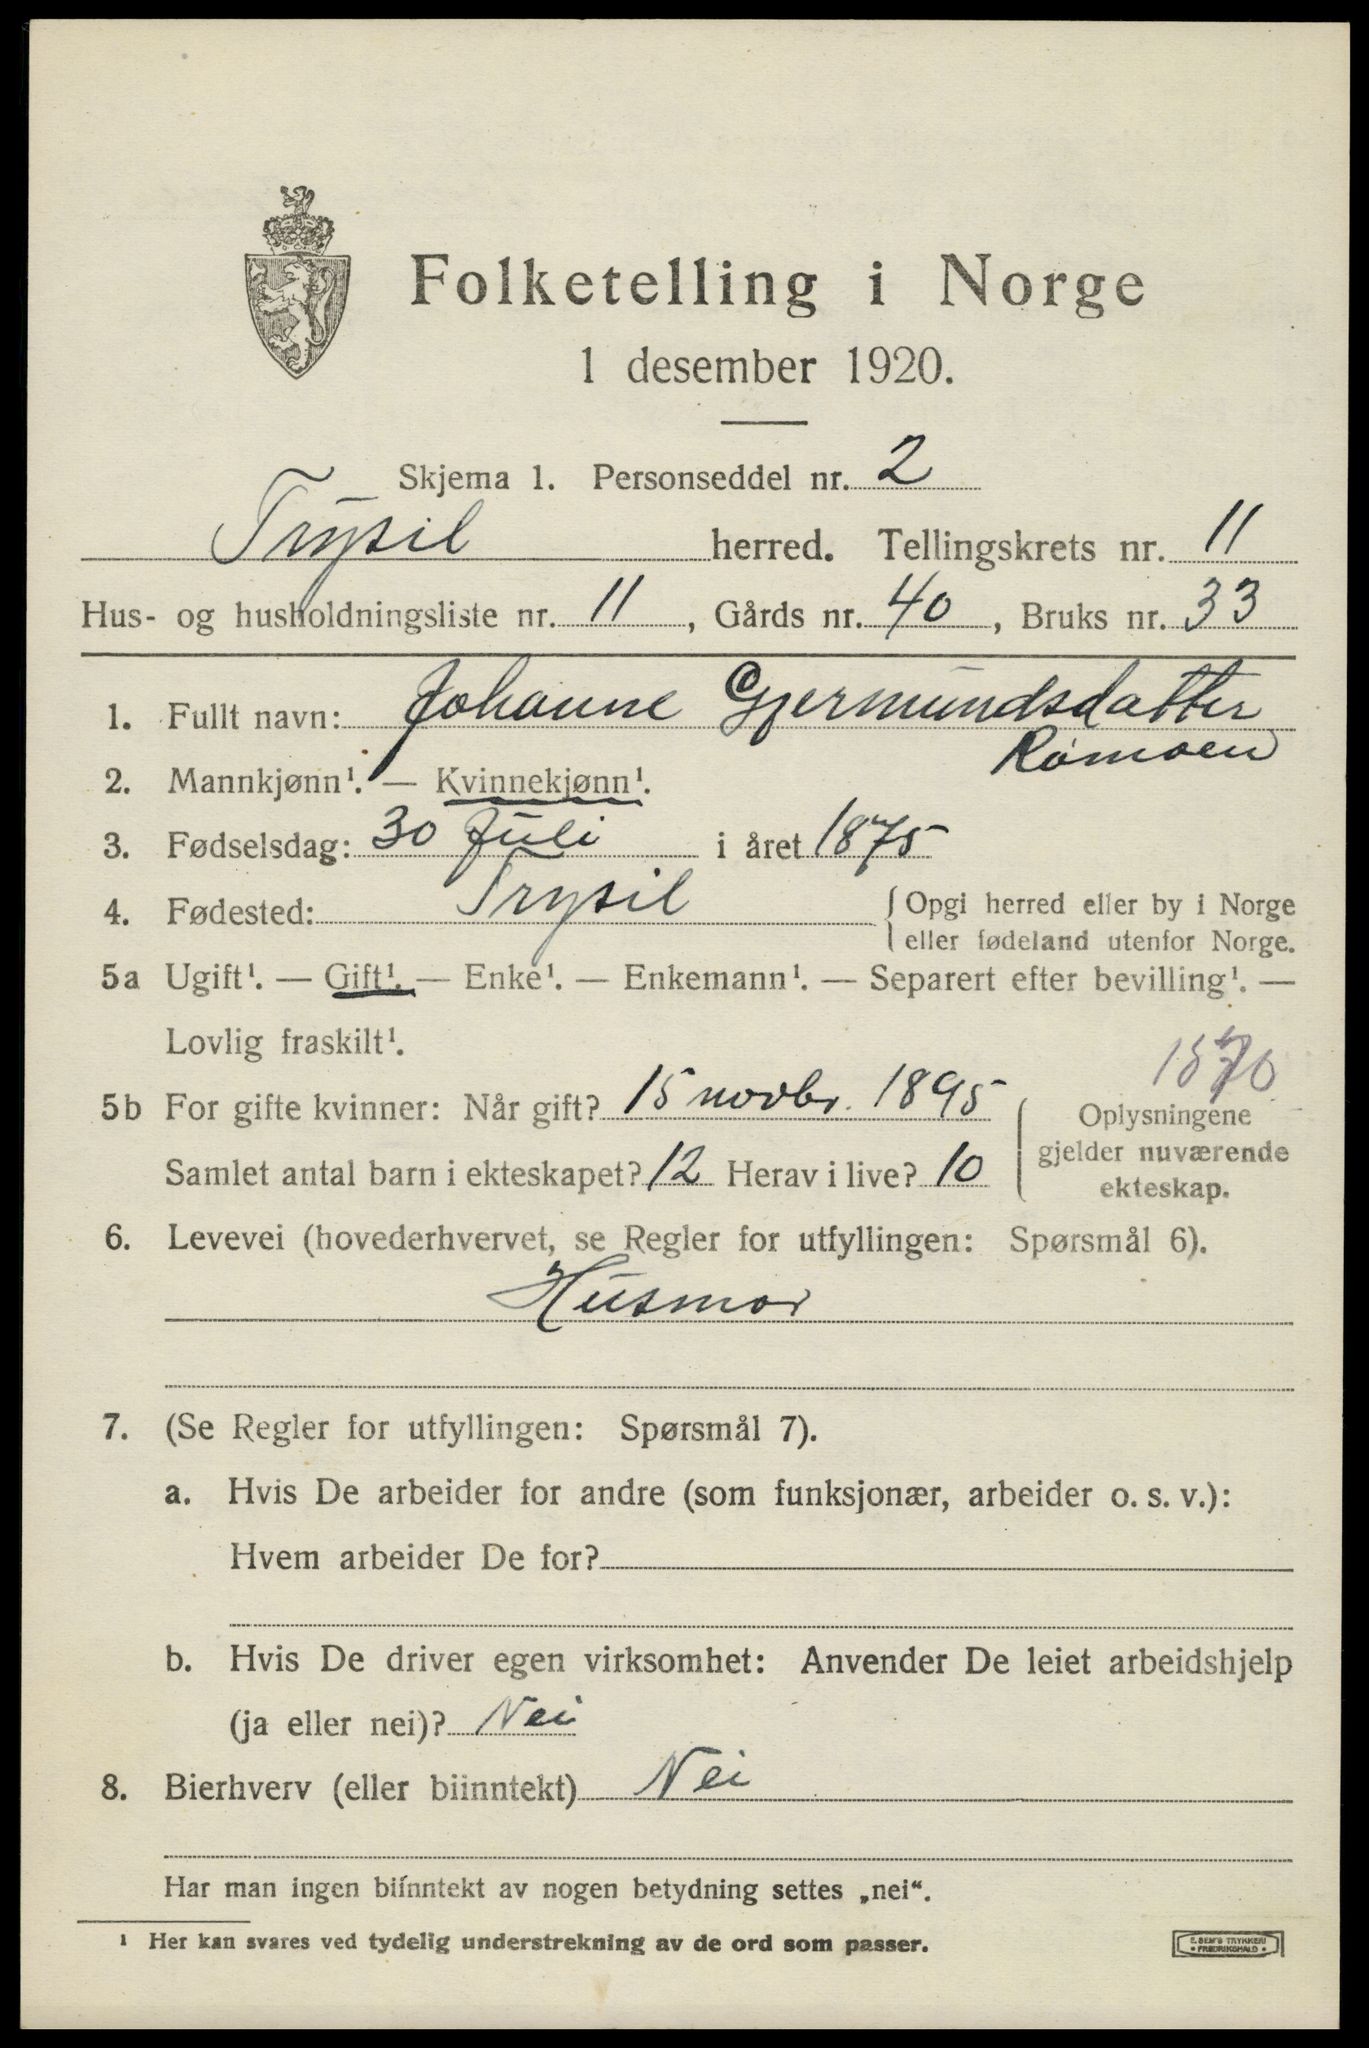 Folketelling i Norge
1 desember 1920.
Skjema 1. Personseddel nr. 2
Trysil herred. Tellingskrets nr. 11
Hus- og husholdningsliste nr. 11, Gårds nr. 40, Bruks nr. 33
1. Fullt navn: Johanne Gjermundsdatter
Rømoen
2. Mannkjønn¹. — Kvinnekjønn¹.
3. Fødselsdag: 30 Juli i året 1875
4. Fødested: Trysil { Opgi herred eller by i Norge
eller fødeland utenfor Norge.
5a Ugift¹. — Gift¹. — Enke¹. — Enkemann¹. — Separert efter bevilling¹. —
Lovlig fraskilt¹.
5b For gifte kvinner: Når gift? 15 novbr. 1895 { Oplysningene
gjelder nuværende
ekteskap.
Samlet antal barn i ekteskapet? 12 Herav i live? 10
6. Levevei (hovederhvervet, se Regler for utfyllingen: Spørsmål 6).
Husmor
7. (Se Regler for utfyllingen: Spørsmål 7).
a. Hvis De arbeider for andre (som funksjonær, arbeider o. s. v.):
Hvem arbeider De for?
b. Hvis De driver egen virksomhet: Anvender De leiet arbeidshjelp
(ja eller nei)? Nei
8. Bierhverv (eller biinntekt) Nei
Har man ingen biinntekt av nogen betydning settes „nei“.
¹ Her kan svares ved tydelig understrekning av de ord som passer.
E. SEM'S TRYKKERI
• FREDRIKSHALD •